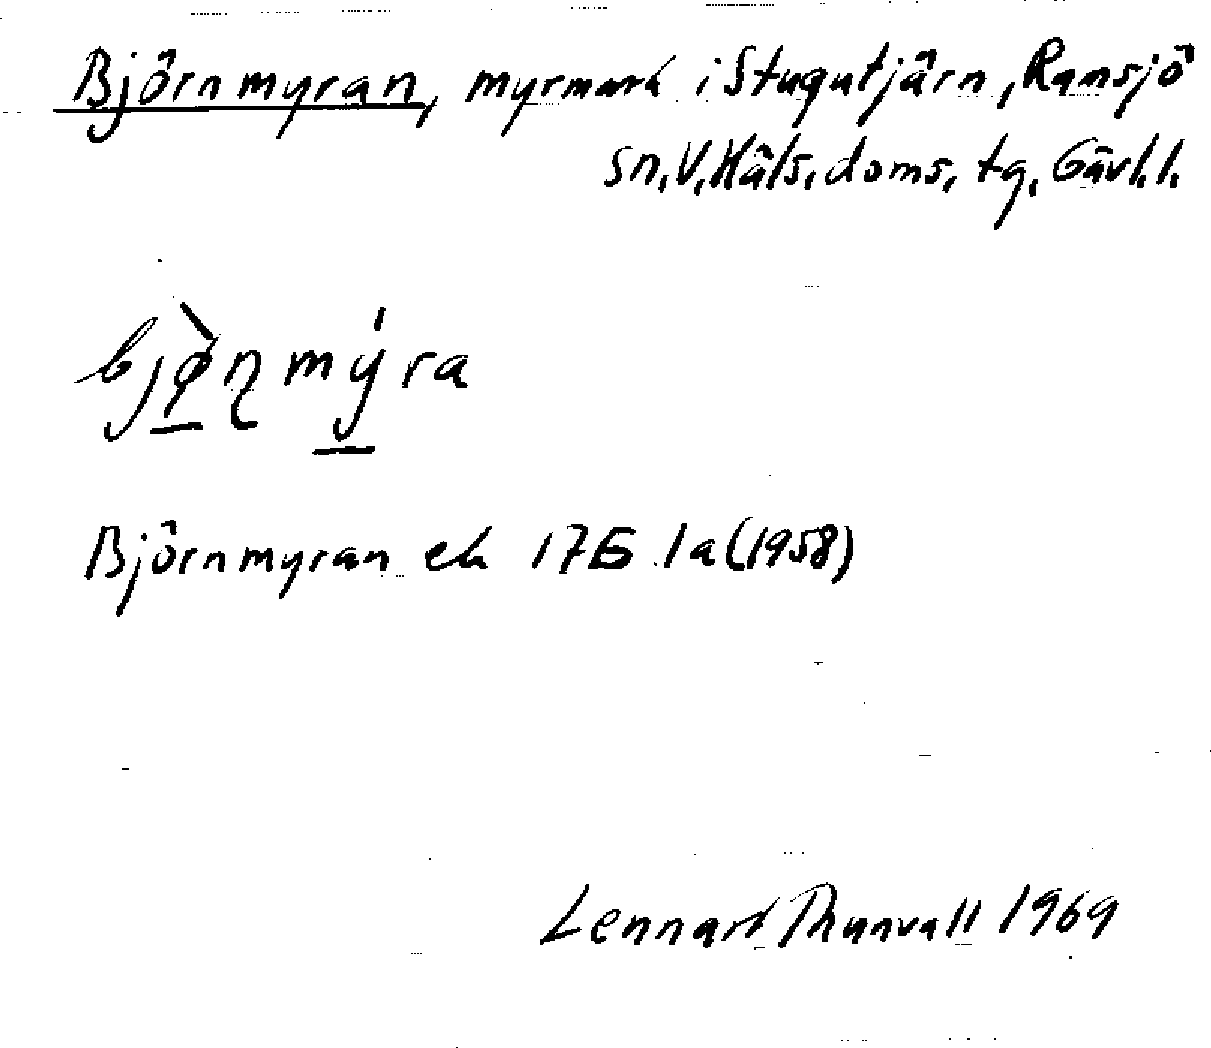 Björnmyran, myrmark i Stugutjärn, Ramsjö
sn, V. Häls. doms. tg. Gävl. l.
bjø̀ɳmýra
Björnmyran ek 17G 1a (1958)
Lennart Thunvall 1969